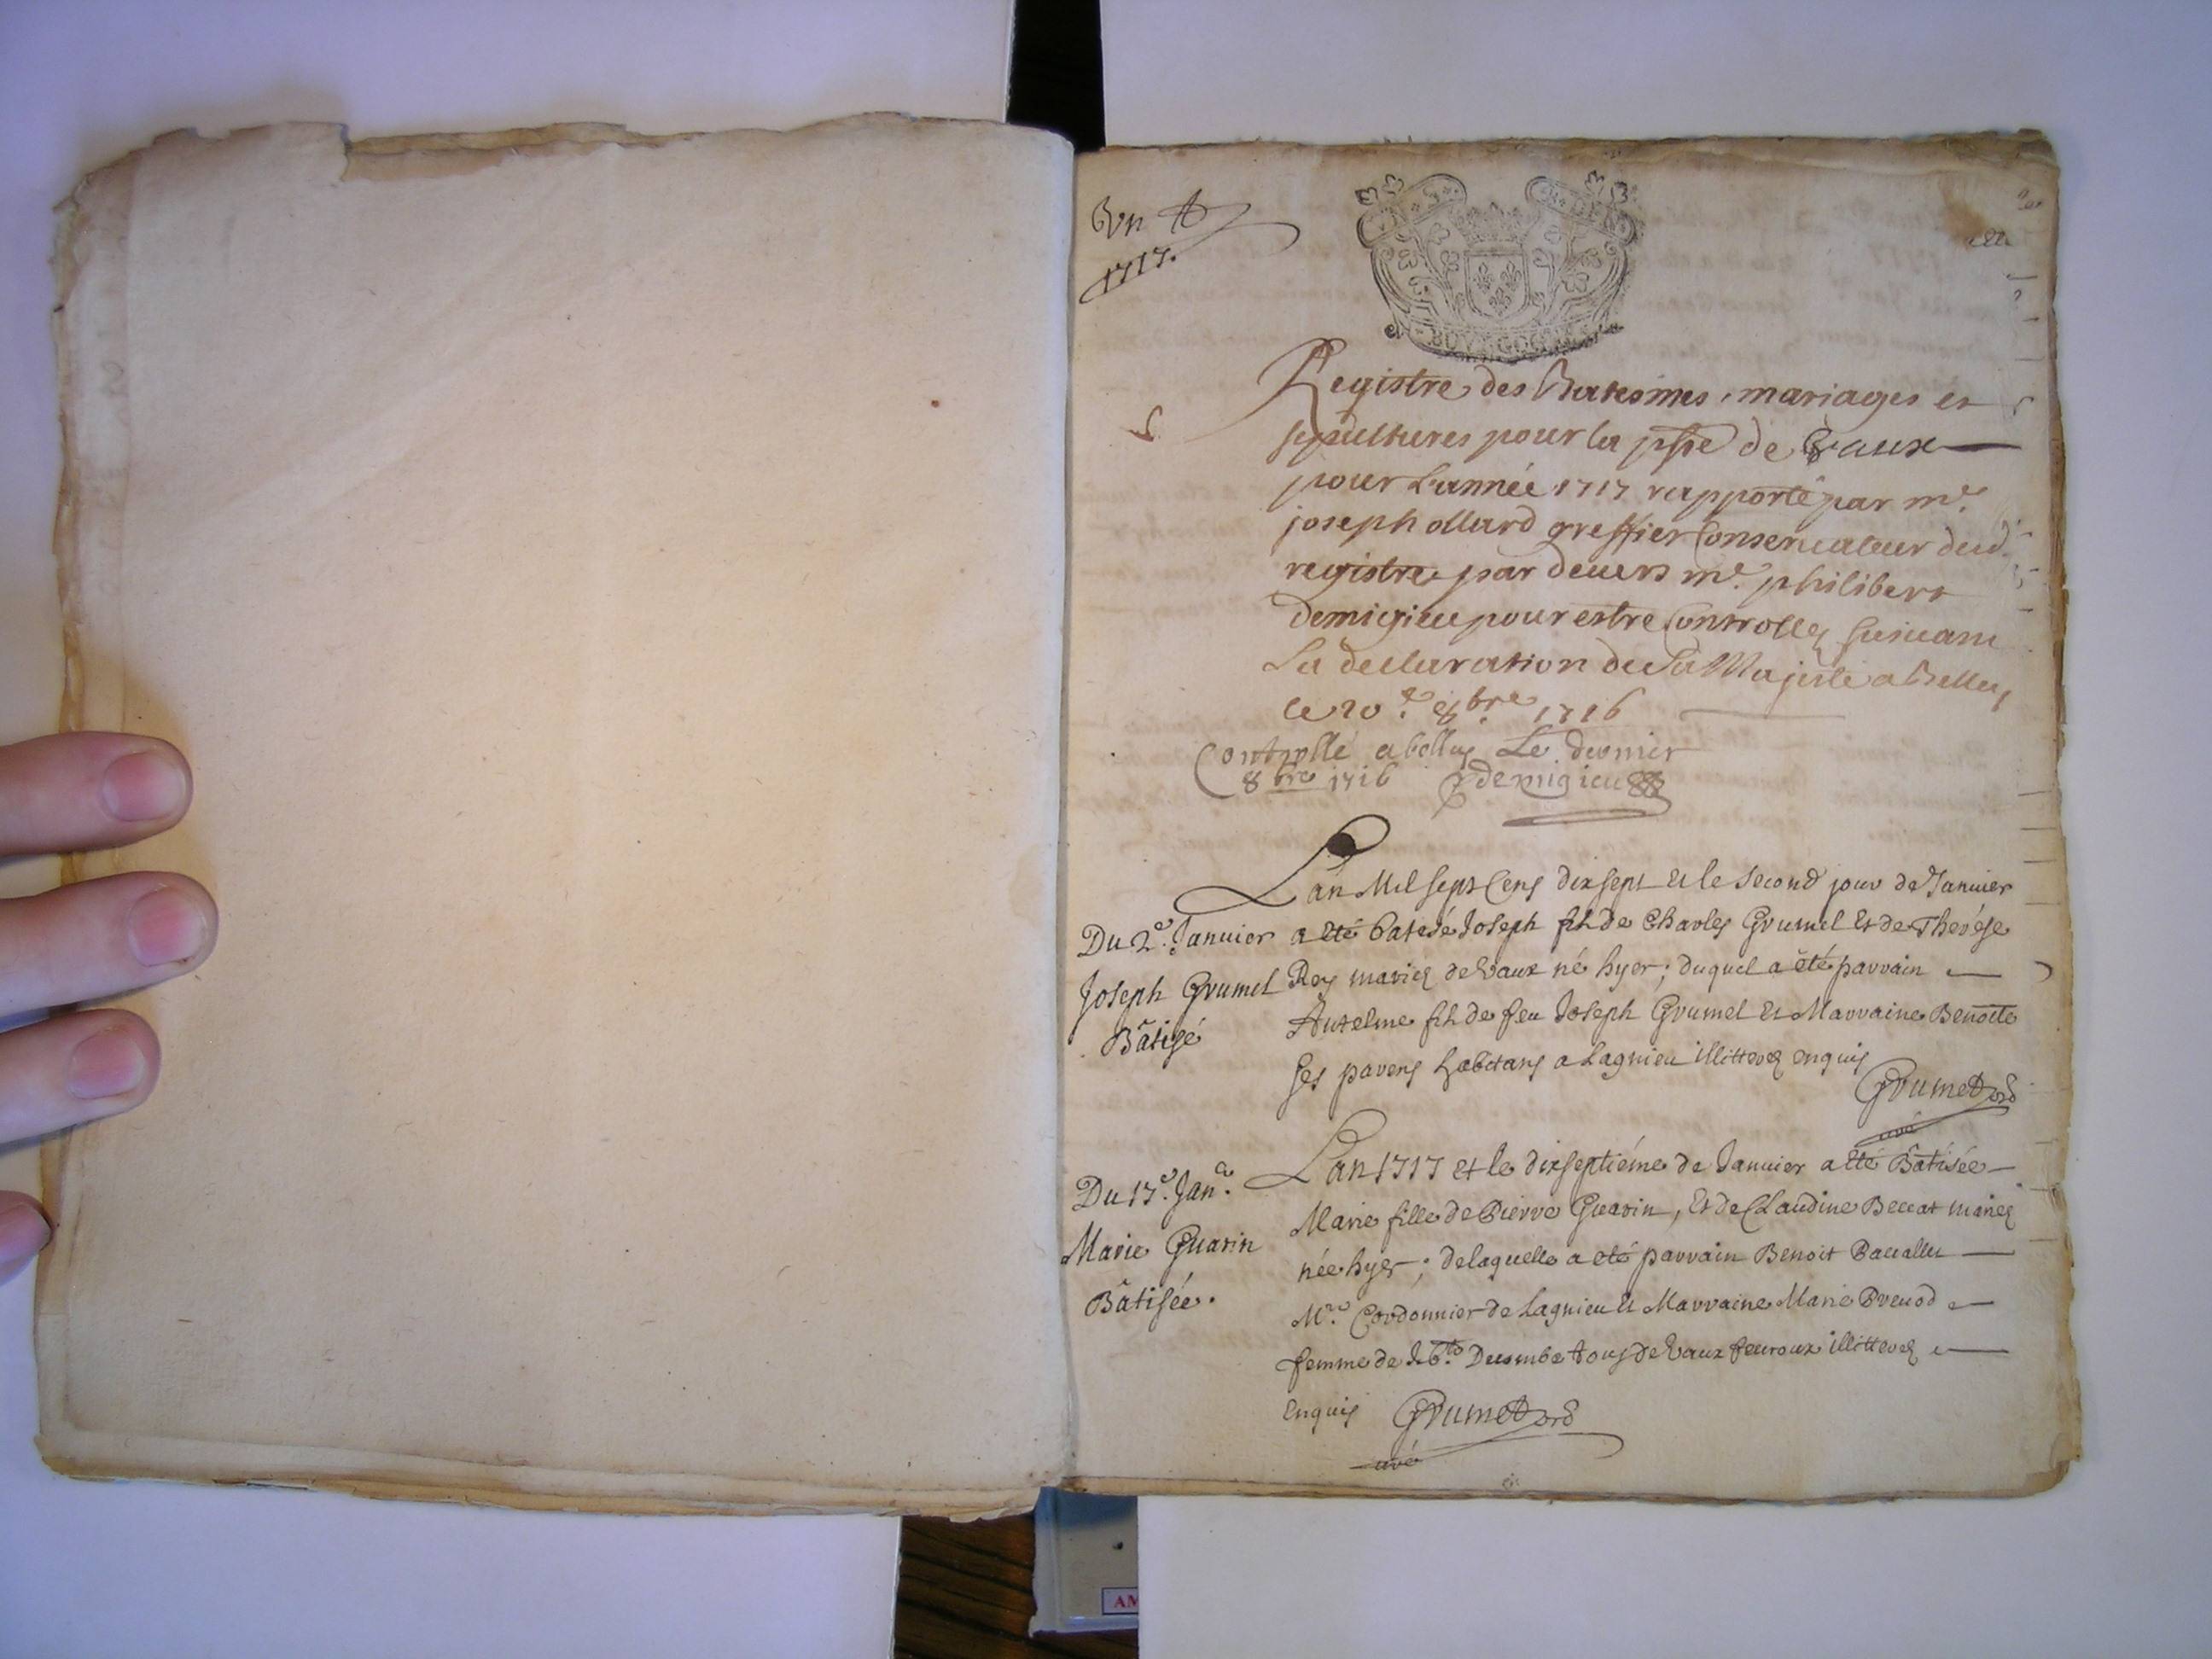 Un
1717.
BOURGOGNE
Registre des Batesmes, mariages et
sepultures pour la psse de Vaux
pour L'année 1717 rapporté par me.
joseph ollard greffier Conservateur dud.
registre par devers me. philibert
demigieu pour estre Controllez suivant
La declaration de Sa Majesté a Belley
le 20e. 8bre. 1716
Controllé a belley Le dernier
8bre 1716 demigieu
L'an Mil sept Cens dix sept et le second jour de Janvier
Du 2e. Janvier a été batisé Joseph fils de Charles Grumel et de Therése
Joseph Grumel Rey mariez de Vaux né hyer; duquel a été parrain
Bâtisé Antelme fils de feu Joseph Grumel et Marraine Benoite
ses parens habitans a Lagnieu illitterez enquis
Grumet
curé
L'an 1717 et le dixseptiéme de Janvier a été Bâtisée
Du 17e. Janr. Marie fille de Pierre Guarin, et de Claudine Beccat mariez
Marie Guarin née hyer; de laquelle a eté parrain Benoit
Bâtisée. Mre. Cordonnier de Lagnieu et Marraine Marie
femme de tous de Vaux illitterez
enquis Grumet
curé
AM